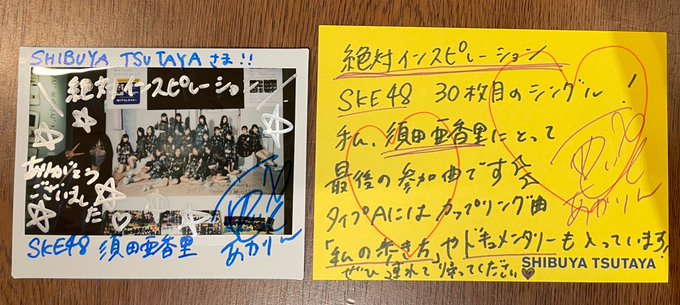 SHIBUYA TSUTAYAさま!!
絶対インスピレーション
ありがとう
ございました
SKE48 須田亜香里
あかりん
絶対インスピレーション
SKE48 30枚目のシングル!
私、須田亜香里にとって
最後の参加曲です
タイプAにはカップリング曲
「私の歩き方」やドキュメンタリーも入っています!
ぜひ連れて帰ってください
あかりん
SHIBUYA TSUTAYA